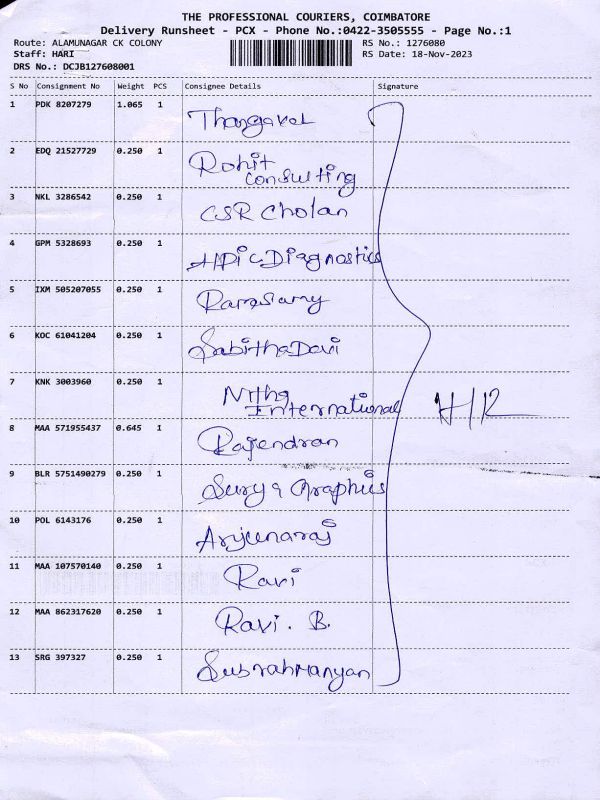 THE PROFESSIONAL COURIERS, COIMBATORE
Delivery Runsheet - PCX - Phone No.:0422-3505555 - Page No.:1
Route: ALAMUNAGAR CK COLONY RS No.: 1276080
Staff: HARI RS Date: 18-Nov-2023
DRS No.: DCJB127608001
S No Consignment No Weight PCS Consignee Details Signature
1 PDK 8207279 1.065 1 Thangavel
2 EDQ 21527729 0.250 1 Rohit
Consulting
3 NKL 3286542 0.250 1 CSR Cholan
4 GPM 5328693 0.250 1 Diagnostics
5 IXM 505207055 0.250 1 Ramasamy
6 KOC 61041204 0.250 1 Sabitha Davi
7 KNK 3003960 0.250 1 Nitha
International
8 MAA 571955437 0.645 1 Rajendran
9 BLR 5751490279 0.250 1 Surya Graphics
10 POL 6143176 0.250 1 Arjunaraj
11 MAA 107570140 0.250 1 Ravi
12 MAA 862317620 0.250 1 Ravi. B.
13 SRG 397327 0.250 1 Subrahmanyan